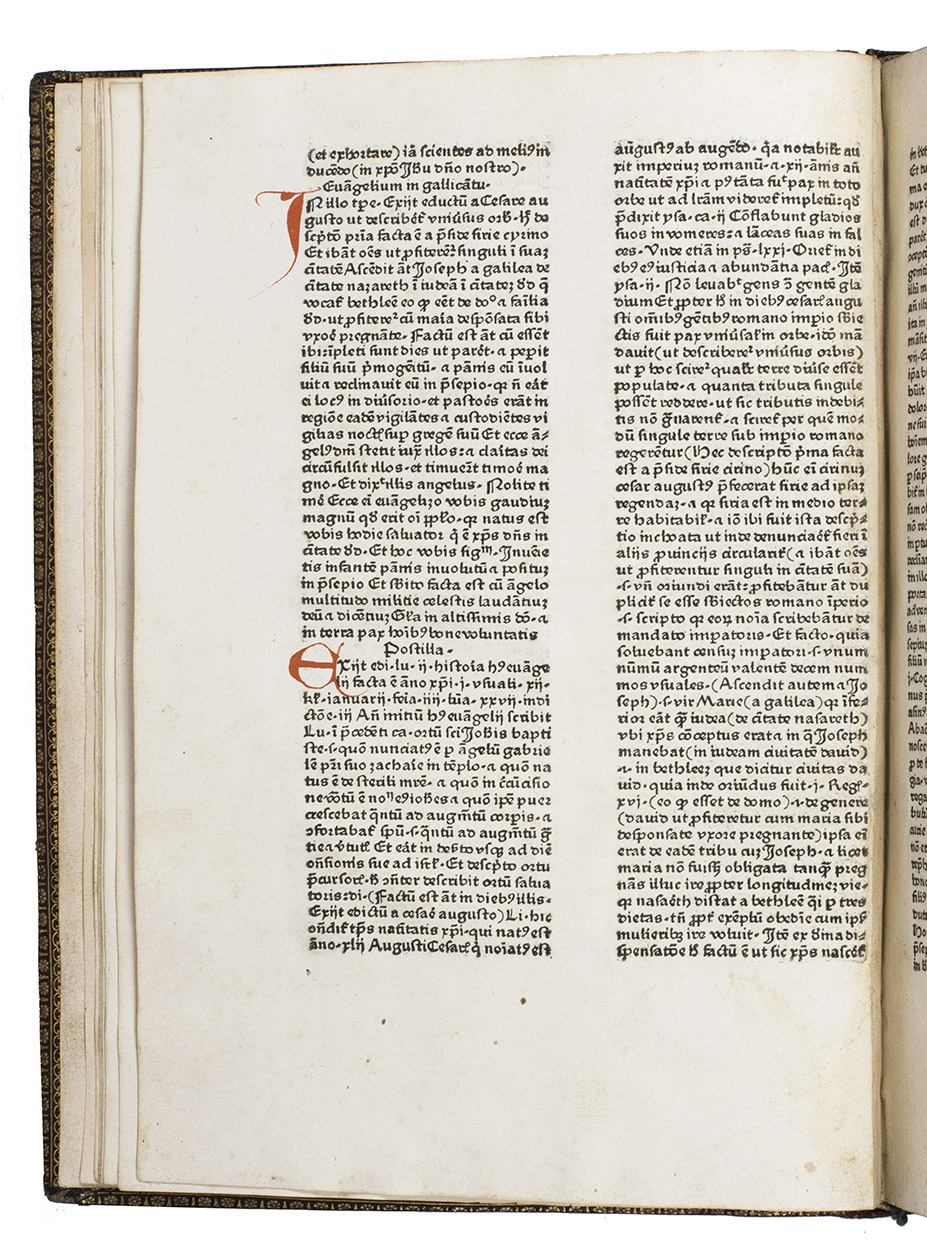 (et exhortare) iā scientes ad meliꝰ in
ducēdo (in xp̄o Jħu dn̄o nostro).
Euāgelium in gallicātu.
IN illo tp̄e. Exijt edictū a Cesare au
gusto ut describeret̄ vniūsus orb̄. H̄ de
scp̄tō prīa facta ē a p̄side sirie cyrino
Et ibāt oēs ut ꝓfiterent̄ singuli ī suaꝫ
ciūtatē Ascēdit āt Joseph a galilea de
ciūtate nazareth ī iudeā ī ciūtateꝫ dd̄ q̄
vocat̄ bethleē eo ꝙ eēt de doº ⁊ fāilia
dd̄. ut ꝓfiteret̄ cū maīa despōsata sibi
vxoē pregnāte. Factū est āt cū essēt
ibi: īpleti sunt dies ut parēt. ⁊ peperit
filiū suū p̄mogenitū. ⁊ pānis eū īuol
uit ⁊ reclinauit eū in p̄sepio. qꝛ nō eāt
ei locꝰ in diūsorio. et pastoēs erāt in
regiōe eadē vigilātes ⁊ custodiētes vi
gilias noctis sup̄ gregē suū Et ecce ā-
gelꝰ dn̄i stetit iuxͣ illos: ⁊ claītas dei
circūfulsit illos. et timuert̄ timoē ma
gno. Et dixᵗ illis angelus. Nolite ti
mē Ecce ei euāgelizo vobis gaudiuꝫ
magnū qd̄ erit oī pp̄lo. qꝛ natus est
vobis hodie saluator q̄ ē xp̄s dn̄s in
ciūtate dd̄. Et hoc vobis sigᵐ. Inuēie
tis infantē pānis inuolutū ⁊ positū
in p̄sepio Et sb̄ito facta est cū āgelo
multitudo militie celestis laudātiuꝫ
deū ⁊ dicētiuꝫ Glīa in altissimis dō. ⁊
in terra pax hoībꝰ bone voluntatis
Postilla.
EXijt edi. lu. ij. histoīa hꝰ euāge
lij facta ē āno xp̄i. i. vsuali. xij.
kl̄. ianuarij. feīa. iiij. lūa. xxvij. indi
ctōe. iij An̄ initiū hꝰ euāgelij scribit
Lu. ī p̄cedēti ca. ortū sc̄i Joħis bapti
ste. s. quō nunciatꝰ ē p āgelū gabrie
lē pr̄i suo zachaīe in tēplo. ⁊ quō na
tus ē de sterili mr̄e. ⁊ quō in cc̄ūcisio
ne vōtū ē noⁿ eiꝰ ioħes ⁊ quō ip̄e puer
crescebat q̄ntū ad augm̄tū corp̄is. ⁊
ꝯfortabat̄ sp̄u. s. q̄ntū ad augm̄tū gͣ
tie ⁊ v̄tut̄. Et eāt in des̄to vsqꝫ ad diē
on̄sionis sue ad isrl̄. Et descp̄to ortu
p̄cursoris. h̄ ꝯn̄ter describit ortū salua
toris: di. (Factū est āt in diebꝰ illis.
Exijt edictū a cesaē augusto) Li. hic
on̄dit̄ tp̄s natītatis xp̄i. qui natꝰ est
āno. xlij Augusti Cesarꝭ q̄ noīatꝰ est
aūgustꝰ ab augēdo. qͣ a notabilit̄ au
xit imperiuꝫ romanū. ⁊. xij. ānis an̄
natītatē xp̄i ⁊ pꝰ tāta fuᵗ pax in toto
orbe ut ad lr̄am videret̄ impletuꝫ qd̄
p̄dixit ysa. ca. ij Cōflabunt gladios
suos in vomeres: ⁊ lāceas suas in fal
ces. Vnde etiā in ps̄. lxxi. Oriet̄ in di
ebꝰ eiꝰ iusticia ⁊ abundātia pacꝭ. Itē
ysa. ij. Nō leuabᵗ gens ꝯ gentē gla
dium Et ꝓpter h̄ in diebꝰ cesarꝭ augu
sti om̄ibꝰ gētibꝰ romano imp̄io sb̄ie
ctis fuit pax vniūsal̄ in orbe. idō mā
dauit (ut describeretᷣ vniūsus orbis)
ut p hoc sciretᷣ qualit̄ terre diūse essēt
populate. ⁊ quanta tributa singule
possēt reddere. ut sic tributis indebi-
tis nō gͣuarent̄. ⁊ sciret̄ per quē mo-
dū singule terre sub imp̄io romano
regerētur (Hec descriptō p̄ma facta
est a p̄side sirie cirino) hūc ei cirinuꝫ
cesar augustꝰ p̄fecerat sirie ad ipsaꝫ
regendaꝫ. ⁊ qꝛ siria est in medio ter-
re habitabil̄. ⁊ iō ibi fuit ista descp̄-
tio inchoata ut inde denunciaēt̄ fieri ī
alijs prouincijs circularit̄ (⁊ ibāt oēs
ut ꝓfiterentur singuli in ciūtatē suā)
.s. vn̄ oriundi erāt: ꝓfitebātur āt du
plicit̄ se esse sb̄iectos romano īperio
.s. scripto qꝛ eorū noīa scribebātur de
mandato impatoris. Et facto. quia
soluebant censuꝫ impatori. s. vnum
nūmū argenteū valentē decem num
mos vsuales. (Ascendit autem ⁊ Jo
seph). s. vir Marie (a galilea) qꝛ īfe-
rior eāt qͣꝫ iudea (de ciūtate nasareth)
vbi xp̄s cōceptus erat ⁊ in qͣ Joseph
manebat (in iudeam ciuitatē dauid)
.i. in bethleeꝫ que dicitur ciuitas da
uid. quia inde oriūdus fuit. j. Regꝭ.
xvj. (eo ꝙ esset de domo). i. de genere
(dauid ut ꝓfiteretur cum maria sibi
desponsate vxore pregnante) ipsa ei
erat de eadē tribu cuꝫ Joseph. ⁊ liceꝫ
maria nō fuisset̄ obligata tanqͣꝫ preg
nās illuc ire ꝓpter longitudineꝫ vie.
qꝛ nasaēth distat a bethleē qͣi p tres
dietas. tn̄ ꝓpt̄ exēplū obediē cum ip̄is
mulieribꝫ ire voluit. Itē ex diuīa di-
spensatōe h̄ factū ē ut sic xp̄s nascēt̄